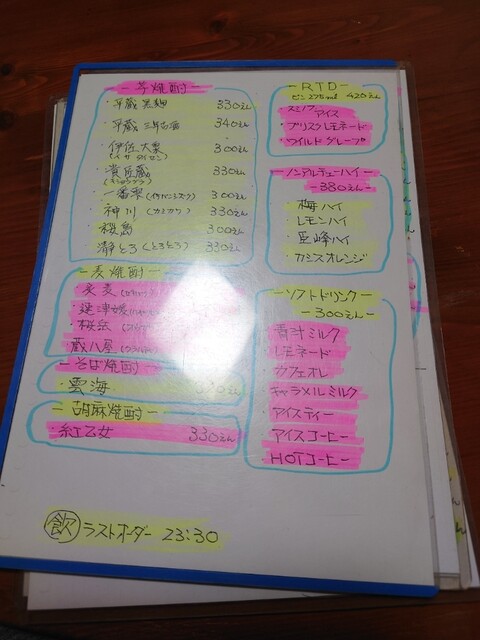 ー芋焼酎ー
・平蔵 黒麹 330えん
・平蔵 340えん
・伊佐大泉 300えん
(イサ ダイセン)
・蔵 330えん
・一番 300えん
・神川 (カミカワ) 330えん
・桜島 300えん
・静とろ (とろとろ) 330えん
ー麦焼酎ー
・桜岳
・蔵八屋
ーそば焼酎ー
・雲海
ー胡麻焼酎ー
・紅乙女 330えん
飲 ラストオーダー 23:30
ーRTDー
ビン275ml 420えん
・スミノフ
アイス
・ブリスクレモネード
・ワイルドグレープ
ノンアルチューハイー
ー380えんー
・梅ハイ
・レモンハイ
・巨峰ハイ
・カシスオレンジ
ーソフトドリンクー
ー300えんー
・青汁ミルク
・レモネード
・カフェオレ
・キャラメルミルク
・アイスティー
・アイスコーヒー
・HOTコーヒー